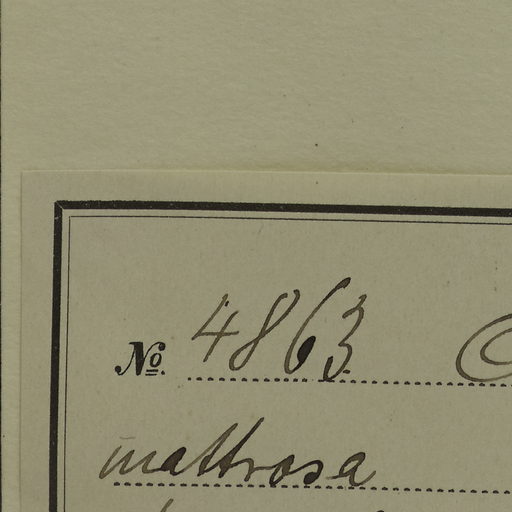 № 4863
mattrosa